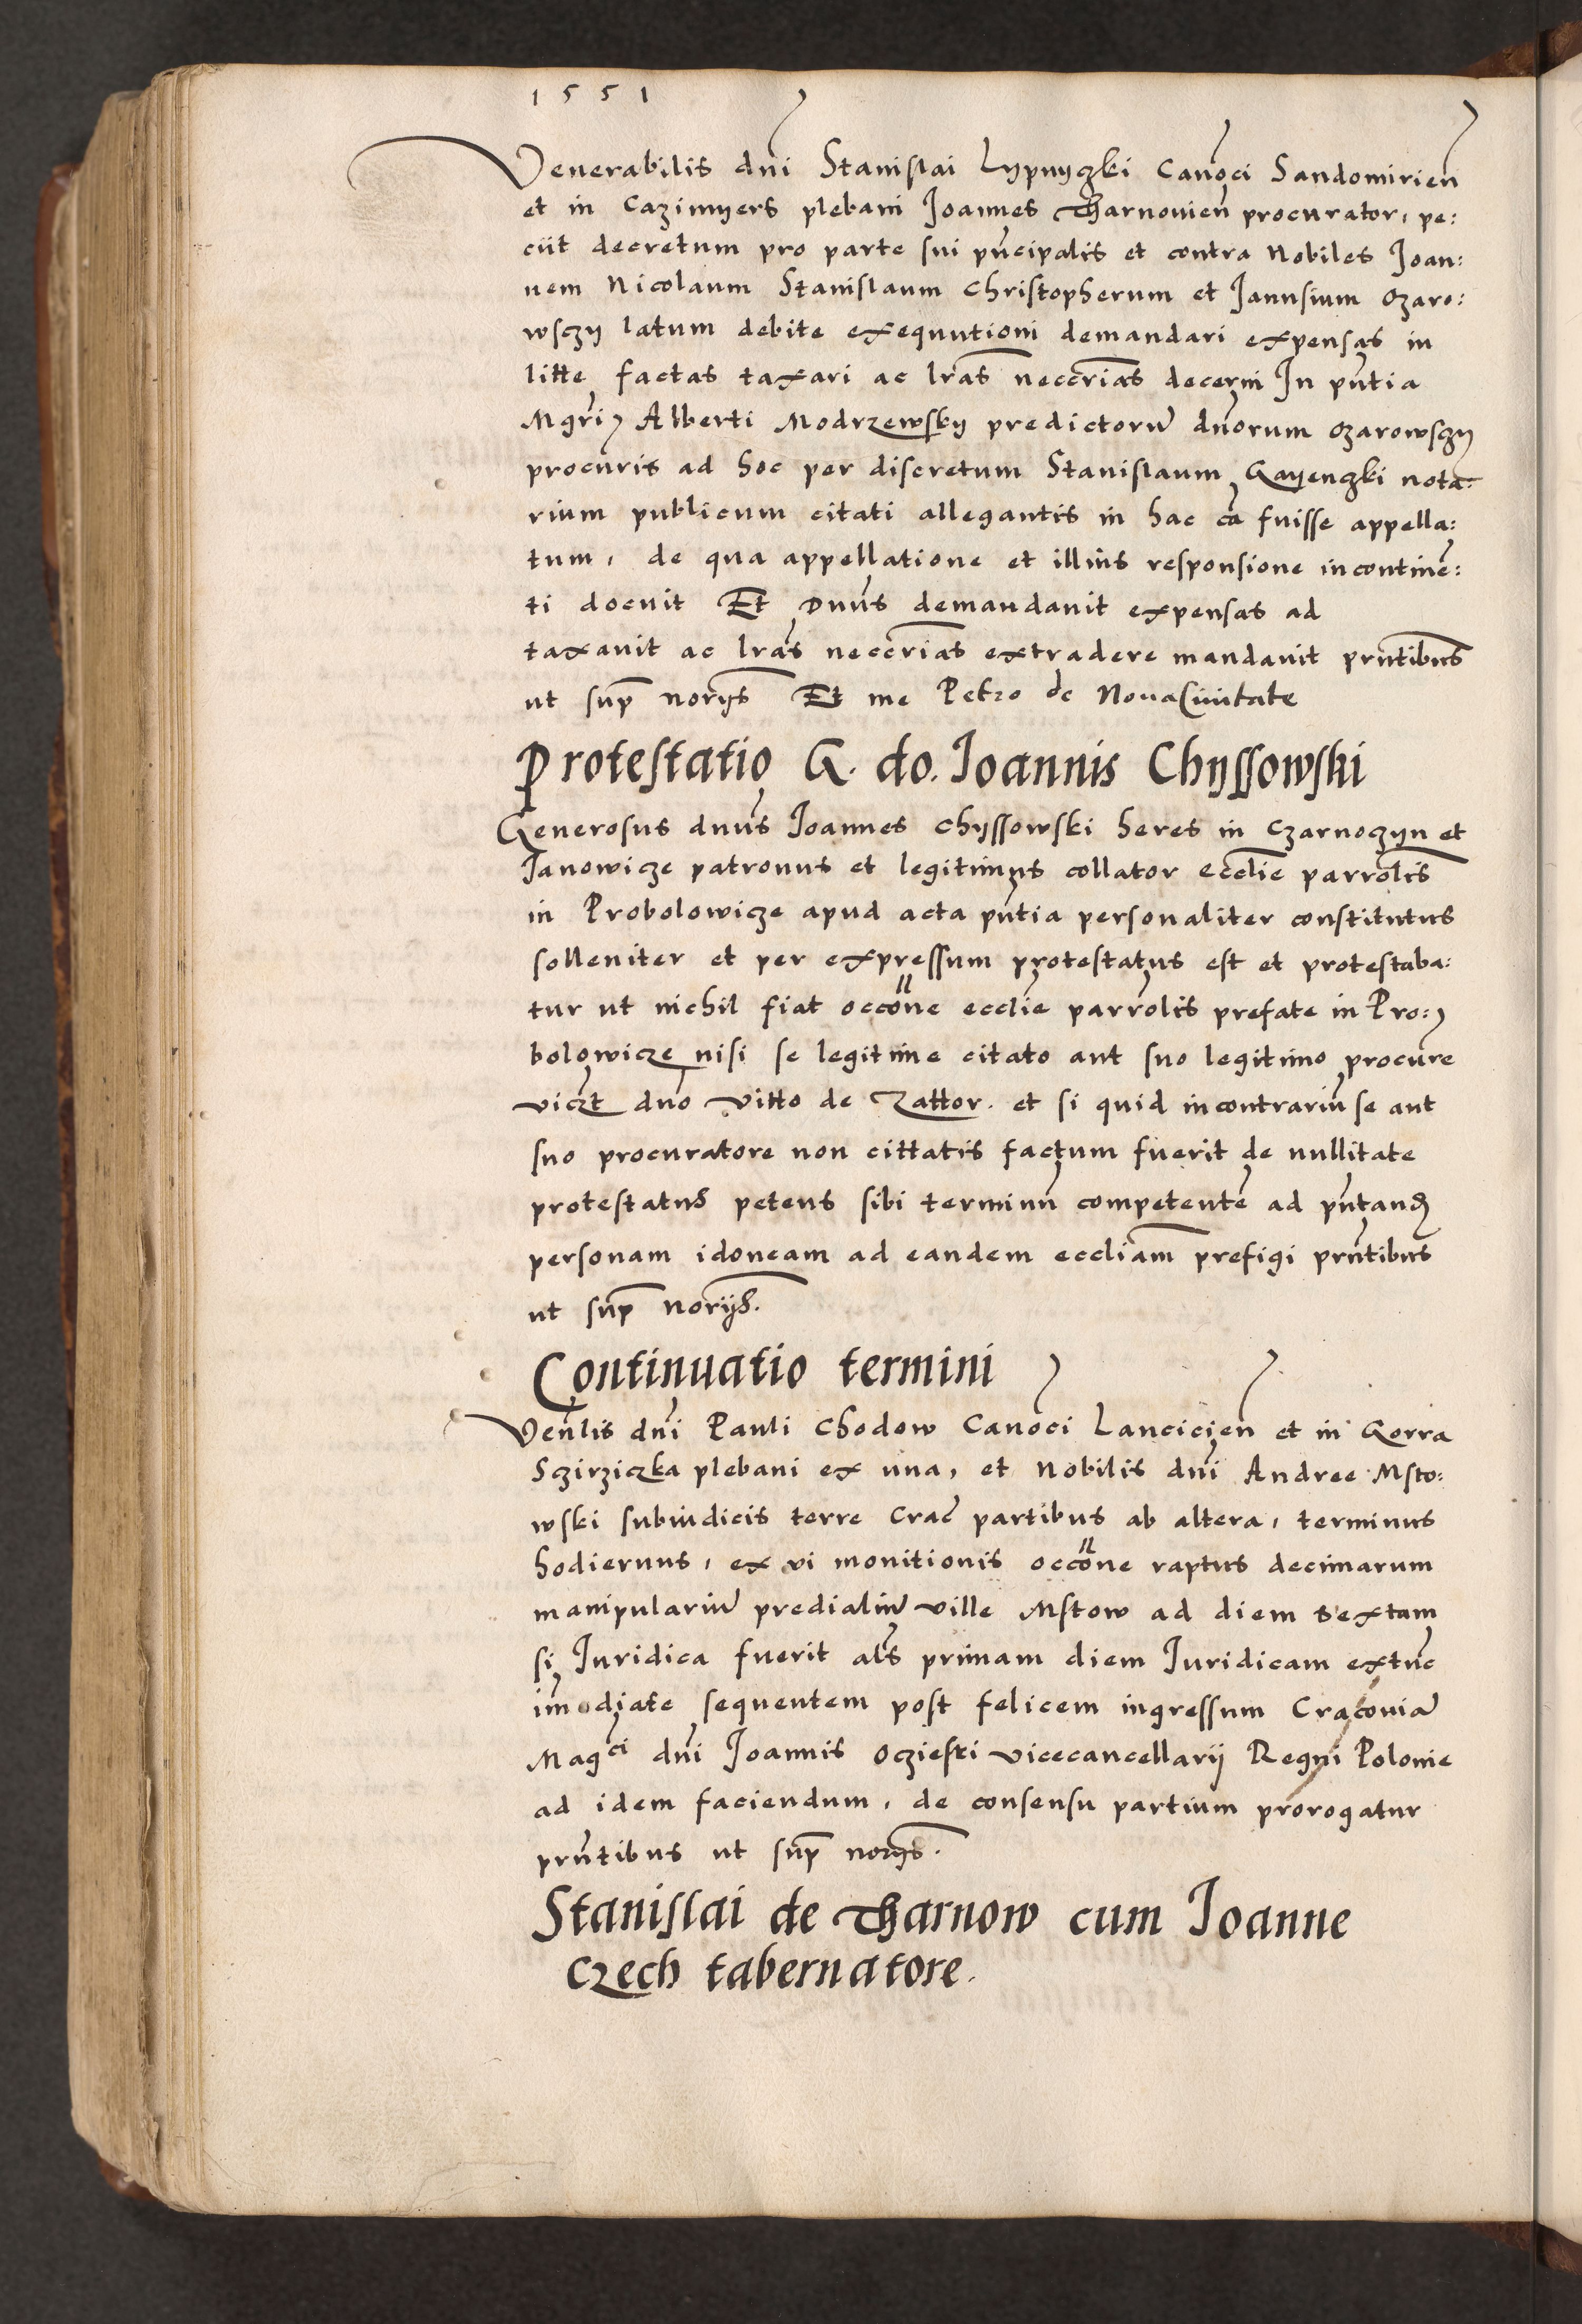 1551
Venerabilis dni Stanislai Lypnyczki Canoci Sandomirien
et in Cazimyers plebani Joannes Tharnovien procurator, pe:
ciit decretum pro parte sui pncipalis et contra Nobiles Joan:
nem Nicolaum Stanislaum Christopherum et Janusium Ozaro:
wsczy latum debite exequutioni demandari expensas in
litte factas taxari ac lras neccrias decerni In pntia
Mgri Alberti Modrzewsky predictoru dnorum Ozarowsczy
procuris ad hoc per discretum Stanislaum Gayenczki nota:
rium publicum citati allegantis in hac ca fuisse appella:
tum, de qua appellatione et illius responsione incontine:
ti docuit Et Dnus demandavit expensas ad
taxavit ac lras neccrias extradere mandavit prntibus
ut sup norijs Et me Petro de Nova Civitate
Protestatio G. do. Joannis Chyssowski
Generosus dnus Joannes Chyssowski heres in Czarnoczyn et
Janowicze patronus et legitimus collator ecclie parrolis
in Probolowicze apud acta pntia personaliter constitutus
solleniter et per expressum protestatus est et protestaba:
tur ut nichil fiat occone ecclie parrolis prefate in Pro:
bolowicze nisi se legitime citato aut suo legitimo procure
viczt dno Vitto de Zattor. et si quid in contrariu se aut
suo procuratore non cittatis factum fuerit de nullitate
protestatus petens sibi terminu competente ad pntand
personam idoneam ad eandem eccliam prefigi prntibus
ut sup norijs.
Continuatio termini
Venlis dni Pauli Chodow Canoci Lancicien et in Gorra
Sczirziczka plebani ex una, et Nobilis dni Andree Msto:
wski subiudicis terre Crac partibus ab altera, terminus
hodiernus, ex vi monitionis occone raptus decimarum
manipulariu predialiu ville Mstow ad diem sextam
si Juridica fuerit als primam diem Juridicam extuc
imediate sequentem post felicem ingressum Cracovia
Magci dni Joannis Oczieski vicecancellarij Regni Polonie
ad idem faciendum, de consensu partium prorogatur
prntibus ut sup norijs.
Stanislai de Tharnow cum Joanne
Czech tabernatore.